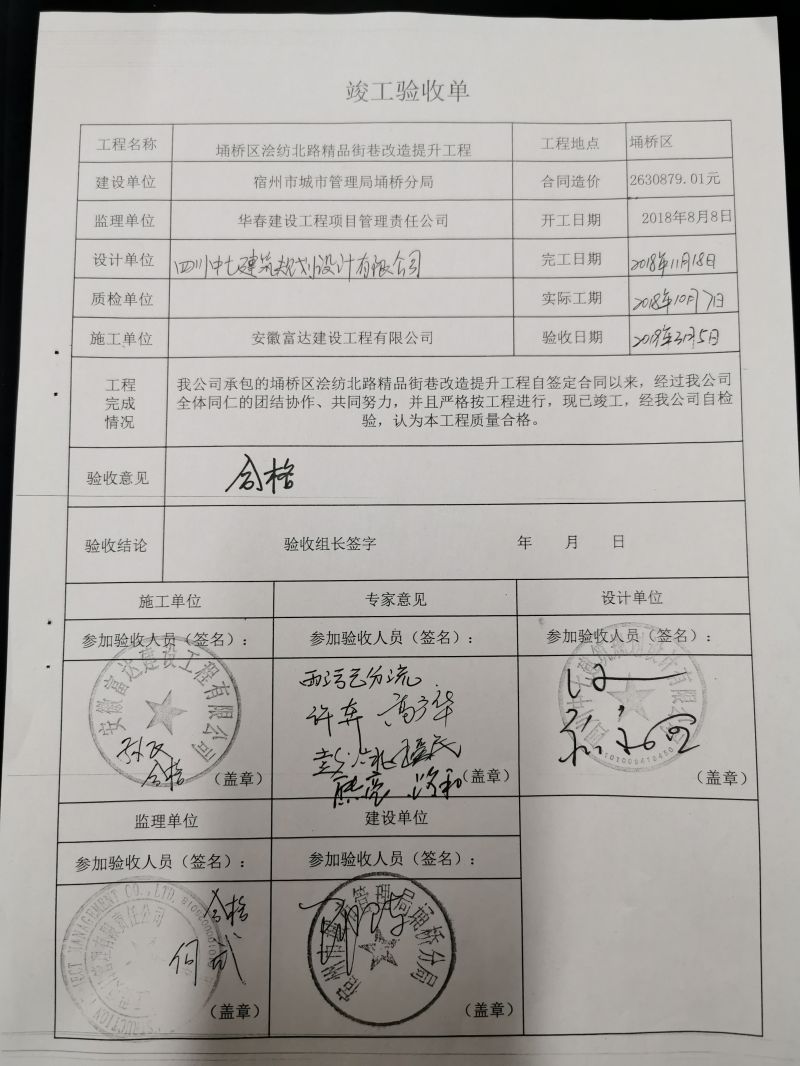 竣工验收单
工程名称 埇桥区浍纺北路精品街巷改造提升工程 工程地点 埇桥区
建设单位 宿州市城市管理局埇桥分局 合同造价 2630879.01元
监理单位 华春建设工程项目管理责任公司 开工日期 2018年8月8日
设计单位 四川中七建筑规划设计有限公司 完工日期 2018年11月18日
质检单位 实际工期 2018年10月7日
施工单位 安徽富达建设工程有限公司 验收日期 2019年3月5日
工程
完成
情况
我公司承包的埇桥区浍纺北路精品街巷改造提升工程自签定合同以来，经过我公司
全体同仁的团结协作、共同努力，并且严格按工程进行，现已竣工，经我公司自检
验，认为本工程质量合格。
验收意见 合格
验收结论 验收组长签字 年 月 日
施工单位 专家意见 设计单位
参加验收人员（签名）： 参加验收人员（签名）： 参加验收人员（签名）：
安徽富达建设工程有限公司
合格
雨污已分流
许奔
（盖章） （盖章） （盖章）
监理单位 建设单位
参加验收人员（签名）： 参加验收人员（签名）：
合格
管理局埇桥分局
（盖章） （盖章）